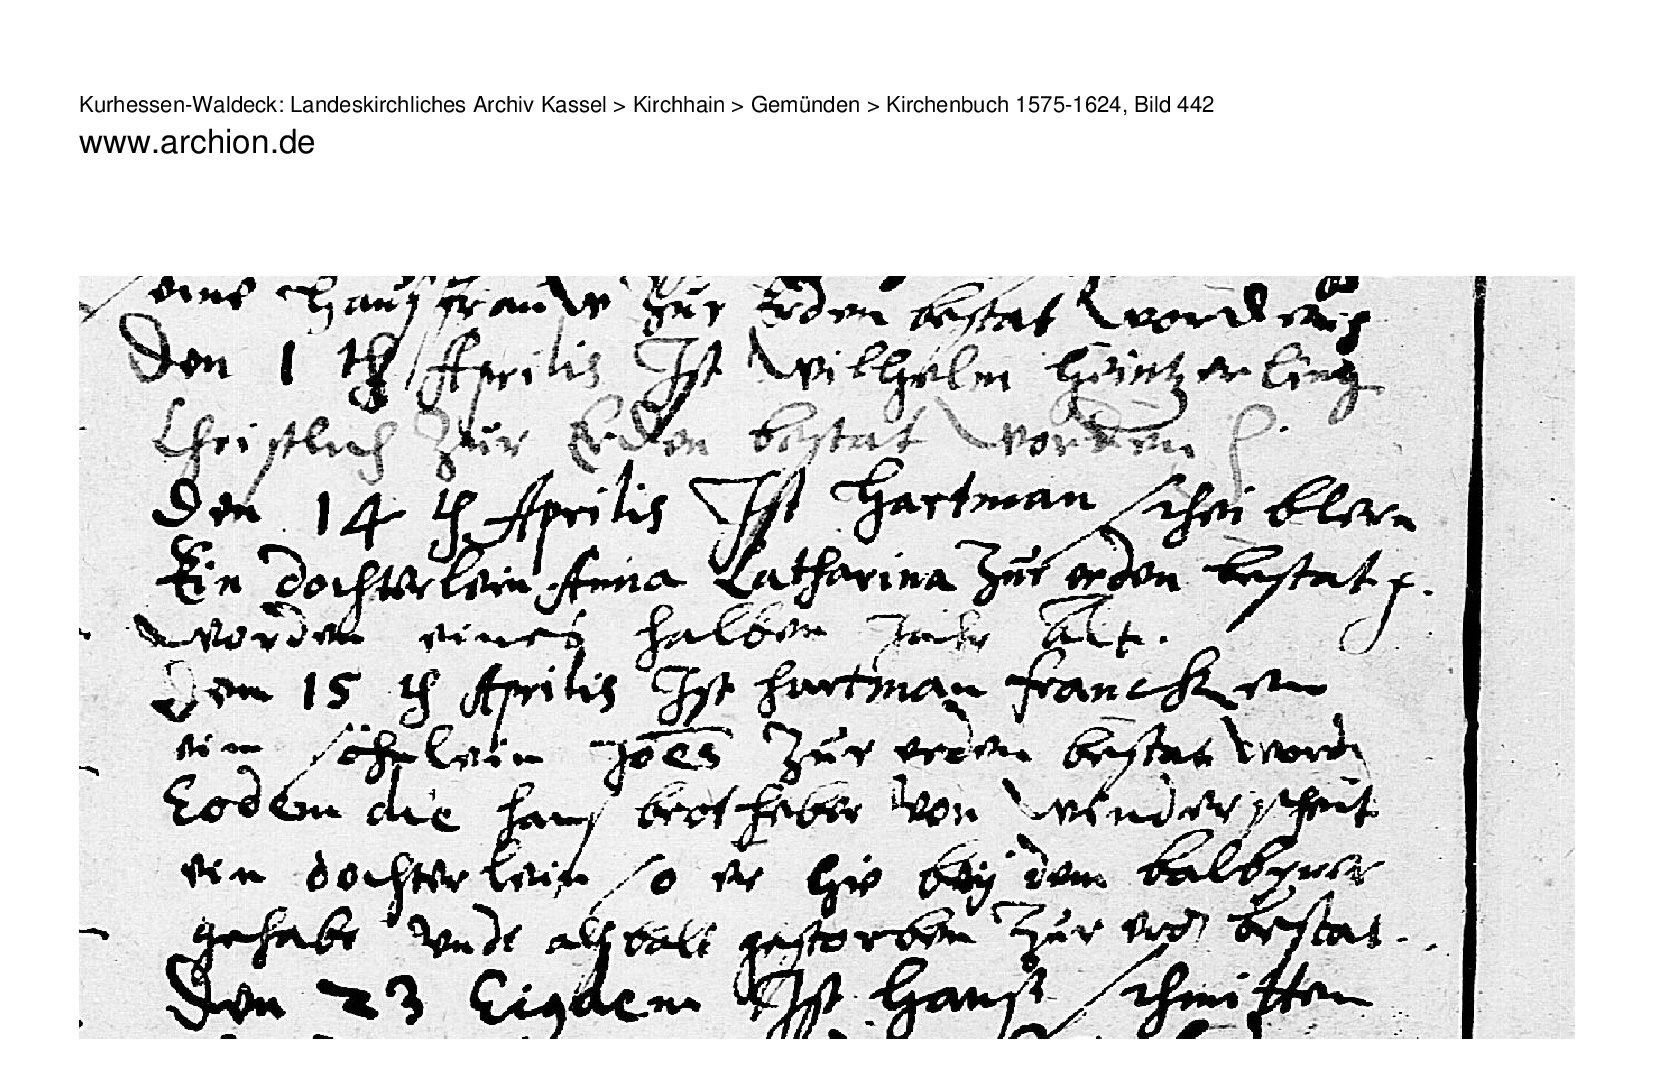 Kurhessen-Waldeck: Landeskirchliches Archiv Kassel > Kirchhain > Gemünden > Kirchenbuch 1575-1624, Bild 442
www.archion.de
eine Haußfrauw zur Erden bestat worden
Den 1 th Aprilis Ist Wilhelm Heintzerling
Christlich zur Erden bestat worden
Den 14 th Aprilis Ist Hartman Scheiblern
Ein dochterlein Anna Catharina zur erden bestat
worden eines halben Jahr alt.
Dem 15 th Aprilis Ist hartman francken
ein söhnlein Joes zur erden bestat word
Eodem die hans von
ein dochterlein so er hie bey dem balbyrer
gehabt undt alßbalt gestorben zur erd bestat.
Den 23 Eiqdem Ist Hanß Schmitten